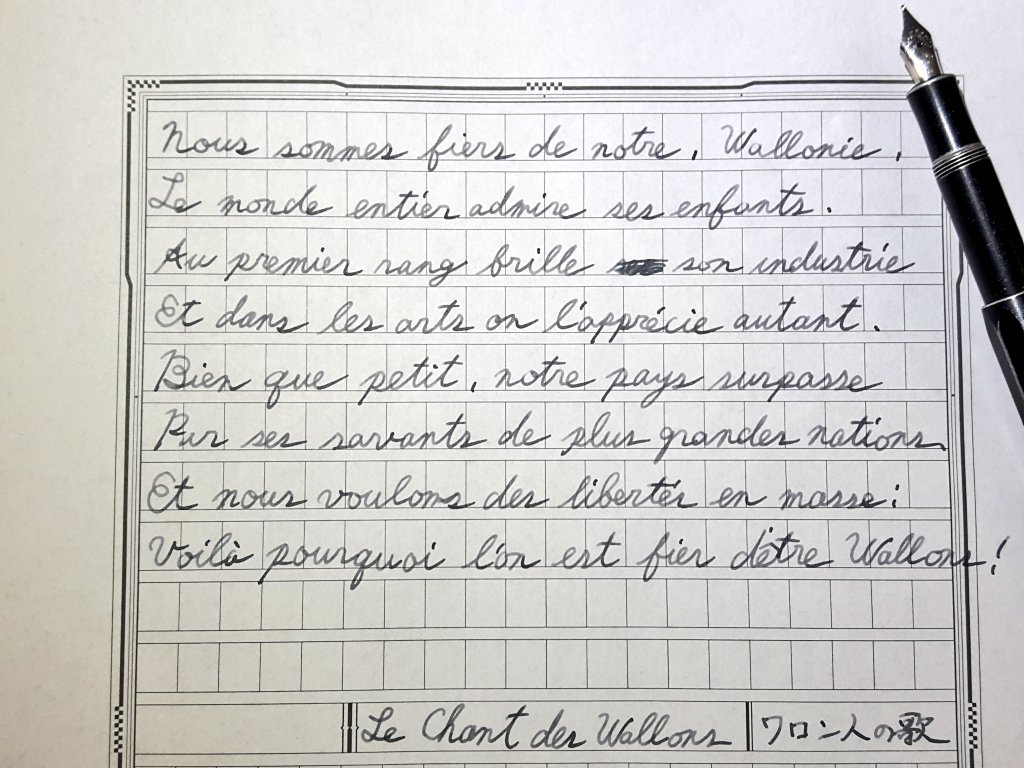 Nous sommes fiers de notre, Wallonie,
Le monde entier admire ses enfants.
Au premier rang brille son industrie
Et dans les arts on l'apprécie autant.
Bien que petit, notre pays surpasse
Par ses savants de plus grandes nations.
Et nous voulons des libertés en masse:
Voilà pourquoi l'on est fier d'être Wallons!
Le Chant des Wallons
ワロン人の歌